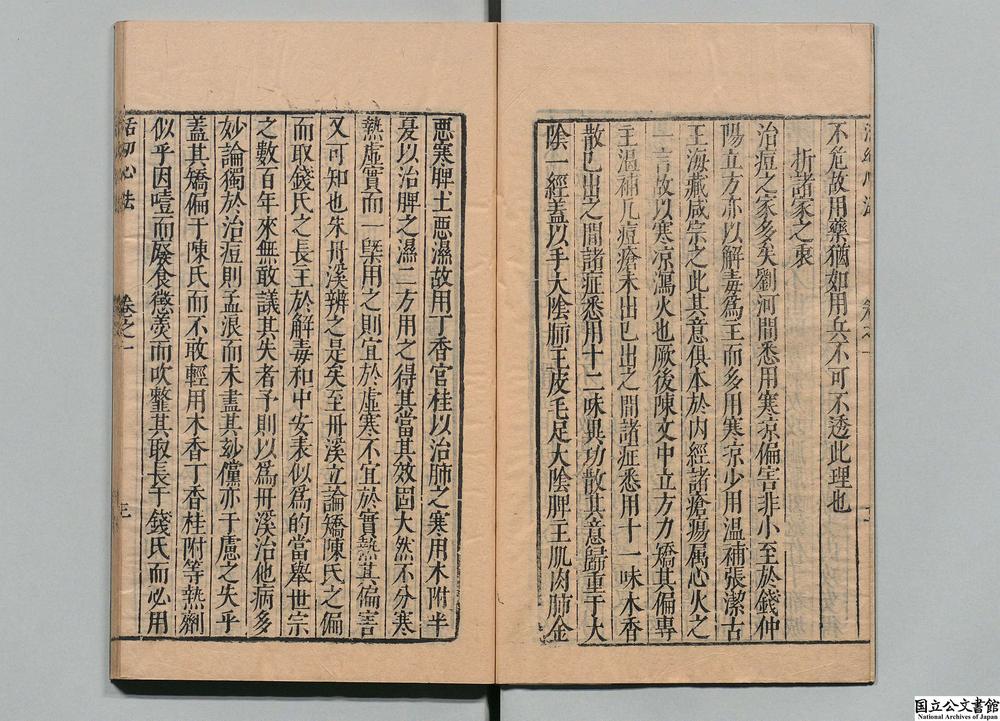 不危故用藥猶如用兵不可不透此理也
折諸家之衷
治痘之家多矣劉河間悉用寒凉偏害非小至於錢仲
陽立方亦以解毒爲王而多用寒凉少用温補張潔古
王海藏咸宗之此其意俱本於内經諸瘡瘍属心火之
一言故以寒凉瀉火也厥後陳文中立方力矯其偏專
主温補凡痘瘡未出已出之間諸症悉用十一味木香
散已出之間諸症悉用十二味異功散其意歸重于太
陰一經蓋以手太陰肺王皮毛足太陰脾王肌肉肺金
惡寒脾土惡濕故用丁香官桂以治肺之寒用木附半
夏以治脾之濕二方用之得其當其效固大然不分寒
熱虛實而一槩用之則宜於虛寒不宜於實熱其偏害
又可知也朱丹溪辨之是矣至丹溪立論矯陳氏之偏
而取錢氏之長王於解毒和中安表似爲的當舉世宗
之數百年來無敢議其失者予則以爲丹溪治他病多
妙論獨於治痘則孟浪而未盡其妙儻亦千慮之失乎
蓋其矯偏于陳氏而不敢輕用木香丁香桂附等熱劑
似乎因噎而廢食懲羹而吹虀其取長于錢氏而必用
活幼心法
卷之一
三
国立公文書館
National Archives of Japan